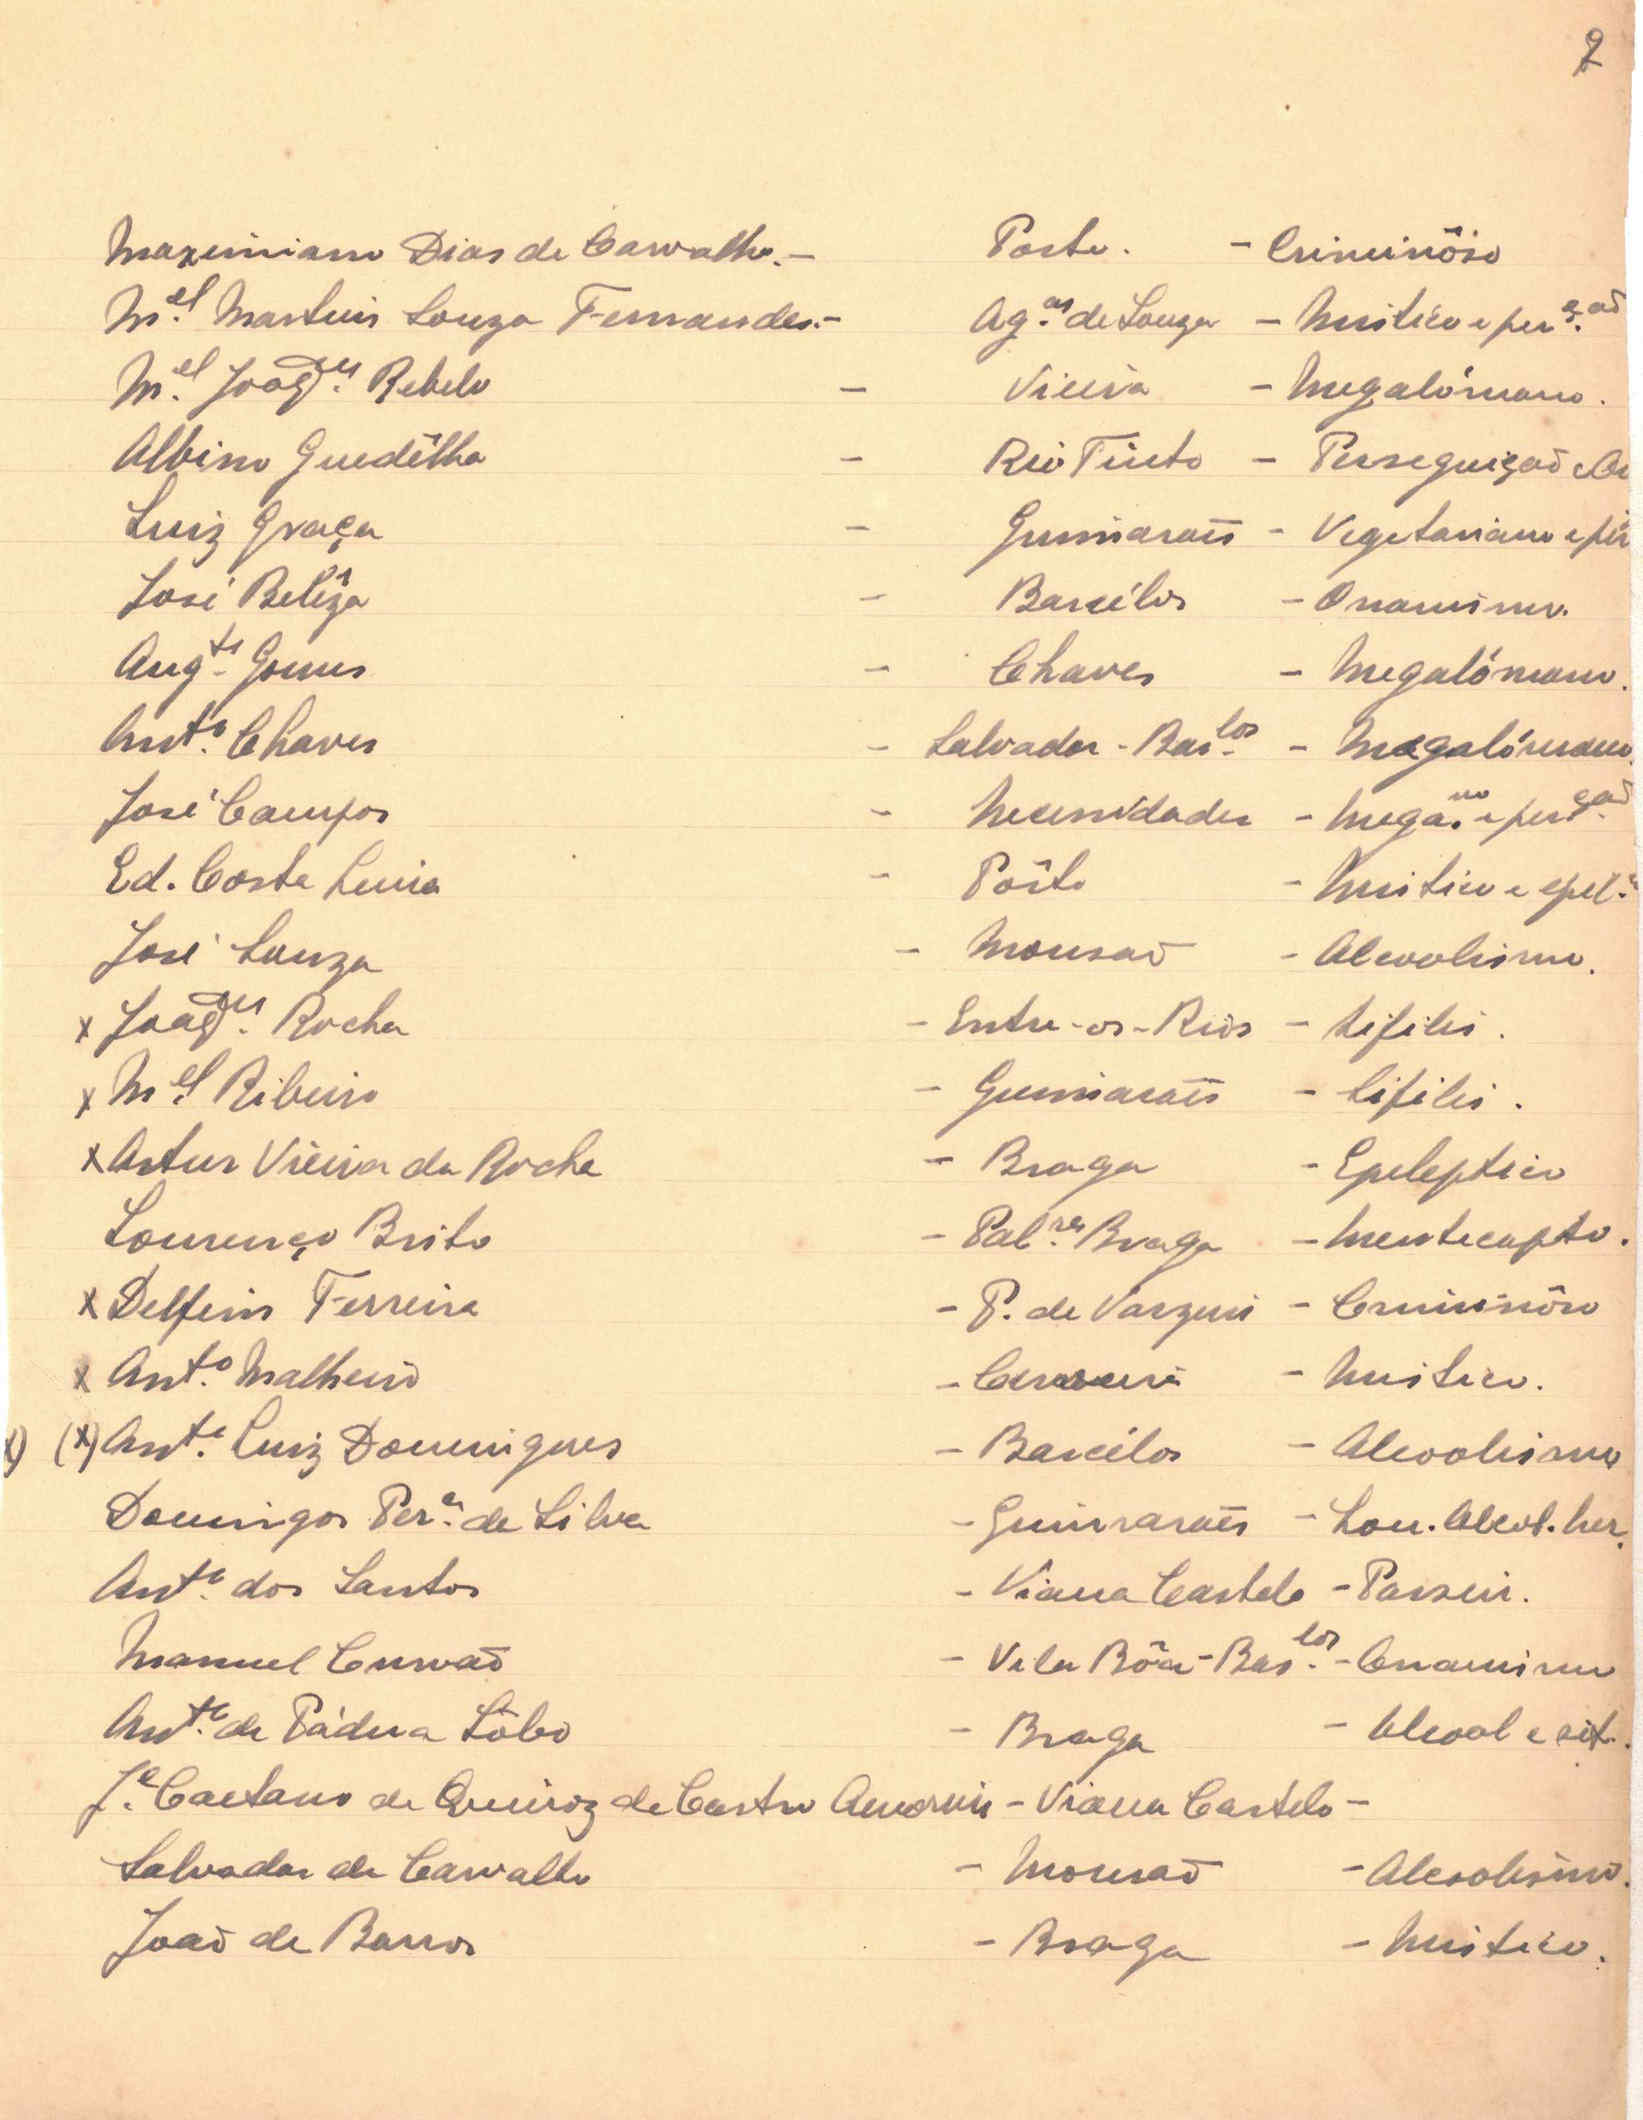 2
Maximiano Dias de Carvalho. - Porto. - Criminôso
M.el Martins Souza Fernandes. - Ag.as de Souza - Mistico e per.ção
M.el Joaq.m Rebelo - Vieira - Megalómano.
Albino Guedêlha - Rio Tinto - Perseguição e
Luiz Graça - Guimarães - Vegetariano e per
José Belêza - Barcélos - Onanismo.
Aug.to Gomes - Chaves - Megalómano.
Ant.o Chaves - Salvador - Bar.los - Megalómano.
José Campos - Necessidades - Mega.no e per.ção
Ed. Costa Lima - Pôrto - Mistico e epel.
José Souza - Monsão - Alcoolismo.
x Joaq.m Rocha - Entre-os-Rios - Sifilis.
x M.el Ribeiro - Guimarães - Sifilis.
x Artur Vieira da Rocha - Braga - Epileptico
Lourenço Brito - Pal.res Braga - Mentecapto.
x Delfim Ferreira - P. de Varzim - Criminôso
x Ant.o Malheiro - - Mistico.
x) (x) Ant.o Luiz Domingues - Barcélos - Alcoolismo
Domingos Per.a da Silva - Guimarães - Lou. Alcol. her.
Ant.o dos Santos - Viana Castelo - Parxin.
Manuel Curvão - Vila Bôa - Bar.los - Onanismo
Ant.o de Pádua Lôbo - Braga - Alcool e sif.
J.e Caetano de Queiroz de Castro Amorim - Viana Castelo -
Salvador de Carvalho - Monsão - Alcoolismo.
João de Barros - Braga - Mistico.